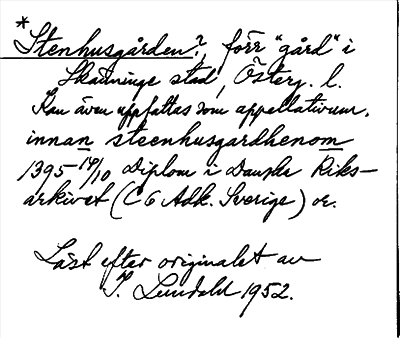 * Stenhusgården?, förr "gård" i
Skänninge stad, Österg. l.
Kan även uppfattas som appellativum.
innan steenhusgardhenom
1395 14/10 Diplom i Danska Riks-
arkivet (C 6 Adk. Sverige) or.
Läst efter originalet av
P. Lundahl 1952.